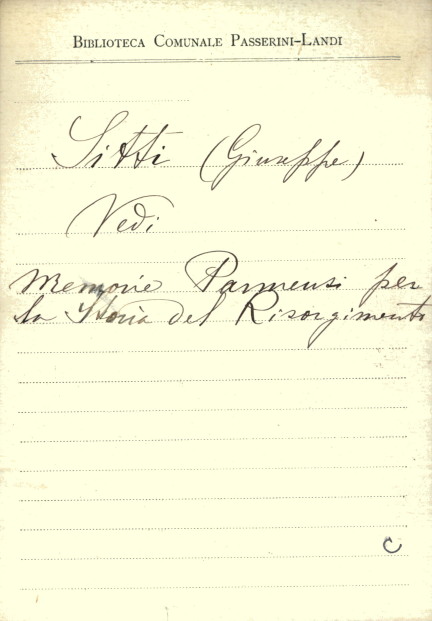 BIBLIOTECA COMUNALE PASSERINI-LANDI
Sitti (Giuseppe)
Vedi
Memorie Parmensi per
la Storia del Risorgimento
C